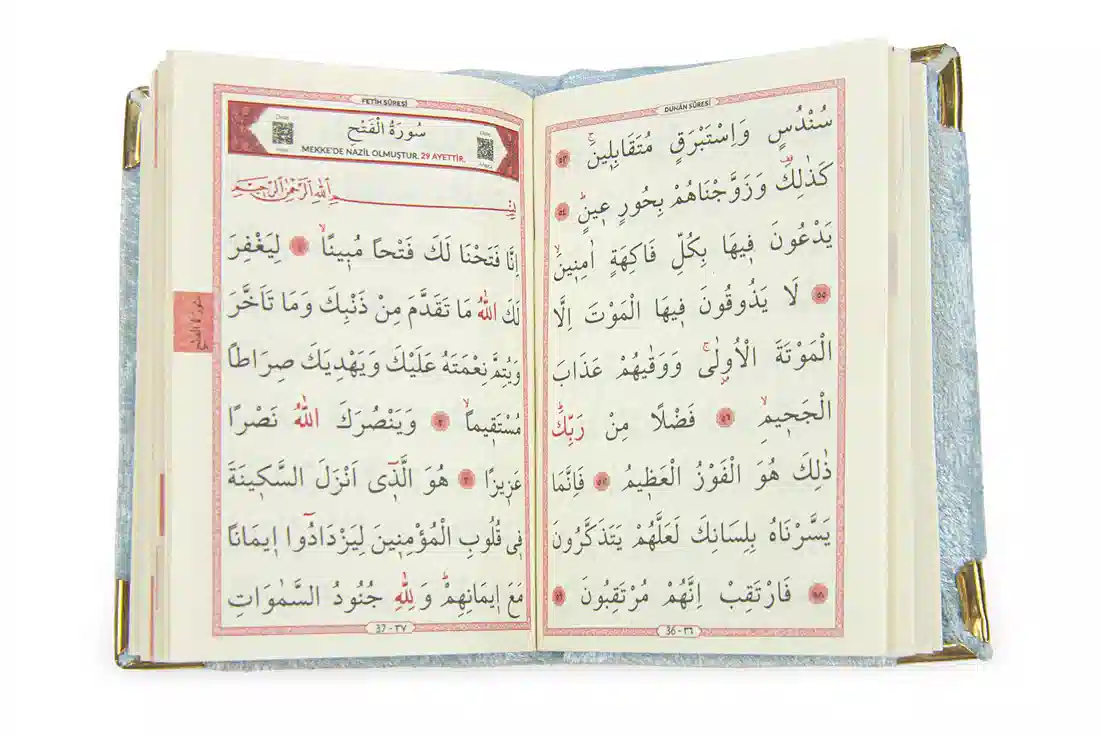 DUHÂN SÛRESİ
سُنْدُسٍ وَاِسْتَبْرَقٍ مُتَقَابِلٖينَۚ ٥٣
كَذٰلِكَ۠ وَزَوَّجْنَاهُمْ بِحُورٍ عٖينٍۜ ٥٤
يَدْعُونَ فٖيهَا بِكُلِّ فَاكِهَةٍ اٰمِنٖينَۙ
٥٥ لَا يَذُوقُونَ فٖيهَا الْمَوْتَ اِلَّا
الْمَوْتَةَ الْاُولٰىۚ وَوَقٰيهُمْ عَذَابَ
الْجَحٖيمِۙ ٥٦ فَضْلًا مِنْ رَبِّكَۜ
ذٰلِكَ هُوَ الْفَوْزُ الْعَظٖيمُ ٥٧ فَاِنَّمَا
يَسَّرْنَاهُ بِلِسَانِكَ لَعَلَّهُمْ يَتَذَكَّرُونَ
٥٨ فَارْتَقِبْ اِنَّهُمْ مُرْتَقِبُونَ ٥٩
36 - ٣٦
FETİH SÛRESİ
سُورَةُ الْفَتْحِ
MEKKE'DE NAZİL OLMUŞTUR. 29 AYETTİR.
بِسْمِ اللّٰهِ الرَّحْمٰنِ الرَّحٖيمِ
اِنَّا فَتَحْنَا لَكَ فَتْحًا مُبٖينًاۙ ١ لِيَغْفِرَ
لَكَ اللّٰهُ مَا تَقَدَّمَ مِنْ ذَنْبِكَ وَمَا تَاَخَّرَ
وَيُتِمَّ نِعْمَتَهُ عَلَيْكَ وَيَهْدِيَكَ صِرَاطًا
مُسْتَقٖيمًاۙ ٢ وَيَنْصُرَكَ اللّٰهُ نَصْرًا
عَزٖيزًا ٣ هُوَ الَّذٖٓى اَنْزَلَ السَّكٖينَةَ
فٖى قُلُوبِ الْمُؤْمِنٖينَ لِيَزْدَادُٓوا اٖيمَانًا
مَعَ اٖيمَانِهِمْۜ وَلِلّٰهِ جُنُودُ السَّمٰوَاتِ
37 - ٣٧
سُورَةُ الفتح